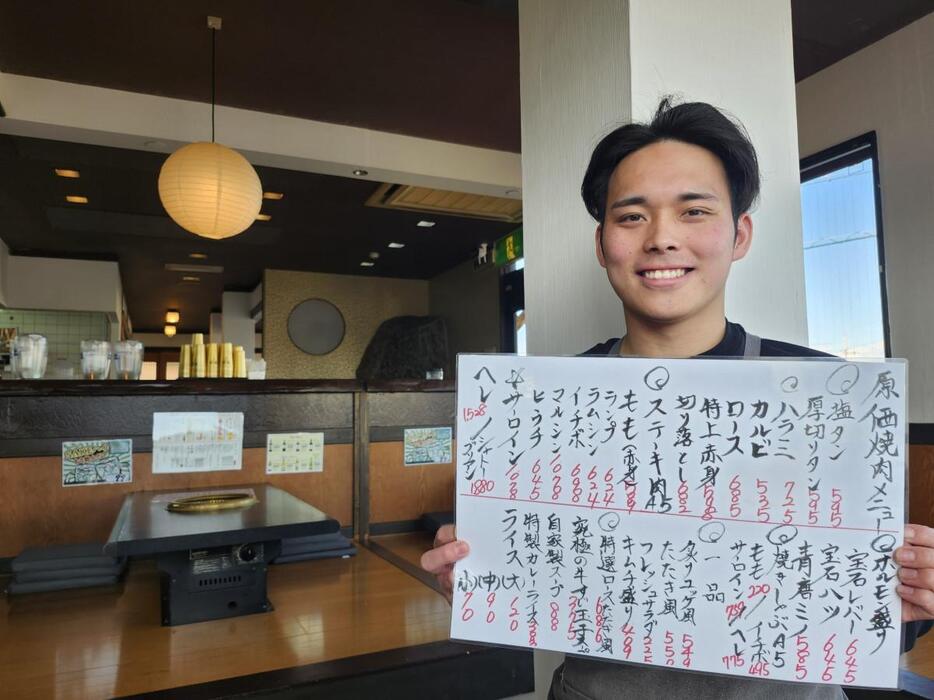 原価焼肉メニュー
◎塩タン 595
厚切りタン 595
◎ハラミ 725
カルビ 535
ロース 685
特上赤身
切り落とし
◎ステーキ肉A5
もも(赤身)
ランプ 624
ラムシン 624
イチボ 698
マルシン 708
ヒウチ 645
☆サーロイン
ヘレ/シャトーブリアン
1528 1880
◎ホルモン盛り
宝石レバー 645
宝石ハツ 645
青磨ミノ 585
◎焼きしゃぶA5
もも220/イチボ495
サロイン759/ヘレ775
◎一品
炙りユッケ風 549
たたき風 550
フレッシュサラダ
キムチ盛り
◎特選ロースたたき風
究極の牛すい玉子
自家製スープ 88
特製カレーライス
ライス(大)(中)(小)
120 90 70